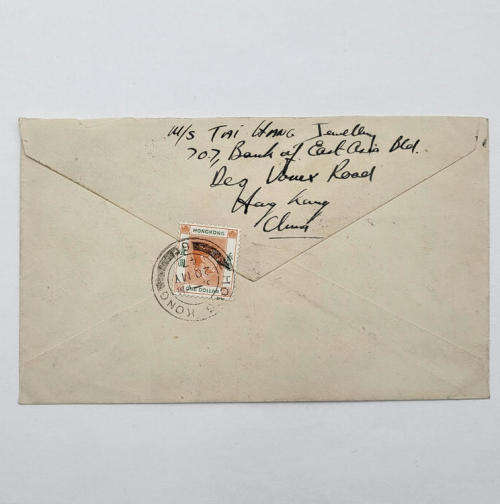 M/S TAI HANG Jewellery
707, Bank of East Asia Bld.
Deq Voux Road
Hong Kong
China
HONG KONG
ONE DOLLAR
HO
KONG
20 MY